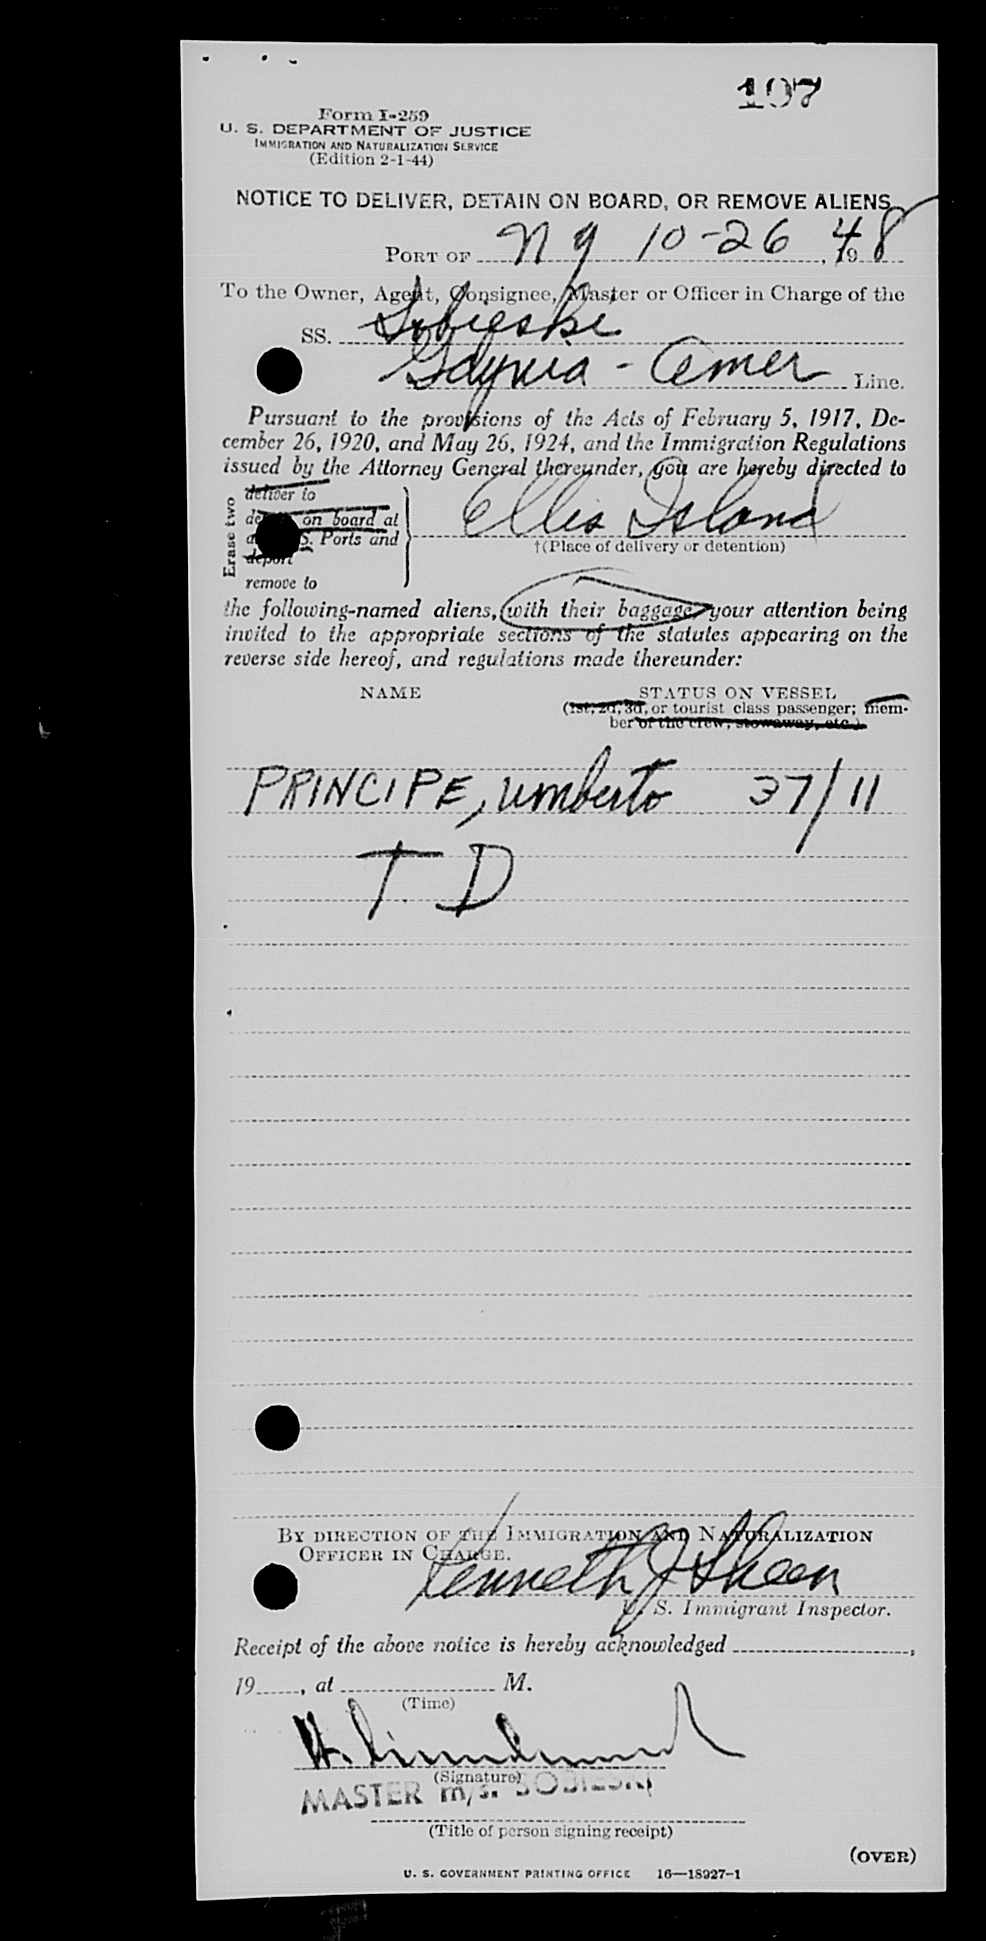 197
Form I-259
U. S. DEPARTMENT OF JUSTICE
IMMIGRATION AND NATURALIZATION SERVICE
(Edition 2-1-44)
NOTICE TO DELIVER, DETAIN ON BOARD, OR REMOVE ALIENS
PORT OF NY 10-26, 1948
To the Owner, Agent, Consignee, Master or Officer in Charge of the
SS. Sobieski
Gdynia - Amer Line.
Pursuant to the provisions of the Acts of February 5, 1917, De-
cember 26, 1920, and May 26, 1924, and the Immigration Regulations
issued by the Attorney General thereunder, you are hereby directed to
Erase two
deliver to
on board at
S. Ports and
deport
remove to
Ellis Island
†(Place of delivery or detention)
the following-named aliens, with their baggage, your attention being
invited to the appropriate sections of the statutes appearing on the
reverse side hereof, and regulations made thereunder:
NAME STATUS ON VESSEL
(1st, 2d, 3d, or tourist class passenger; mem-
ber of the crew, stowaway, etc.)
PRINCIPE, Umberto 37/11
T D
BY DIRECTION OF THE IMMIGRATION AND NATURALIZATION
OFFICER IN CHARGE.
Kenneth J Sheen
U. S. Immigrant Inspector.
Receipt of the above notice is hereby acknowledged ,
19 , at M.
(Time)
(Signature)
MASTER m/s. SOBIESKI
(Title of person signing receipt)
(OVER)
U. S. GOVERNMENT PRINTING OFFICE 16—18927-1